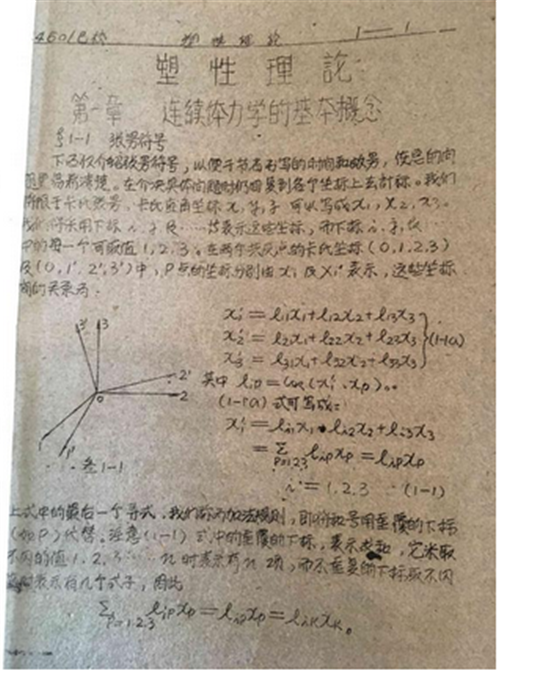 4601已校 塑性理论 1—1
塑性理论
第一章 连续体力学的基本概念
§1-1 张量符号
下面仅介绍张量符号，以便于节省书写的时间和效劳，使思
清楚。在介决具体问题时仍回到各个坐标上去计标。我们
将限于卡氏张量，卡氏直角坐标x, y, z可以写成x₁, x₂, x₃。
我们将采用下标i, j, 及……等表示这些坐标，而下标i, j, 
中的每一个可取值1, 2, 3。在两个共原点的卡氏坐标(0, 1, 2, 3)
及(0, 1', 2', 3')中，P点的坐标分别由xᵢ及xᵢ'表示，这些坐标
间的关系为：
x₁' = l₁₁x₁+l₁₂x₂+l₁₃x₃
x₂' = l₂₁x₁+l₂₂x₂+l₂₃x₃ (1-1a)
x₃' = l₃₁x₁+l₃₂x₂+l₃₃x₃
其中 lᵢₚ = cos(xᵢ', xₚ)。
(1-1a) 式可写成：
xᵢ' = lᵢ₁x₁+lᵢ₂x₂+lᵢ₃x₃
= Σ lᵢₚxₚ = lᵢₚxₚ
P=1,2,3
i = 1, 2, 3 …(1-1)
3' 3
2'
0 2
1 1'
图1-1
上式中的最后一个等式，我们称为加法规则，即将和号用重复的下标
(如P)代替。注意(1-1)式中的重复的下标，表示求和，它来取
不同的值1, 2, 3……n时表示有n项；而不重复的下标取不同
值时表示有几个式子，因此
Σ lᵢₚxₚ = lᵢₚxₚ = lᵢₖxₖ。
P=1,2,3